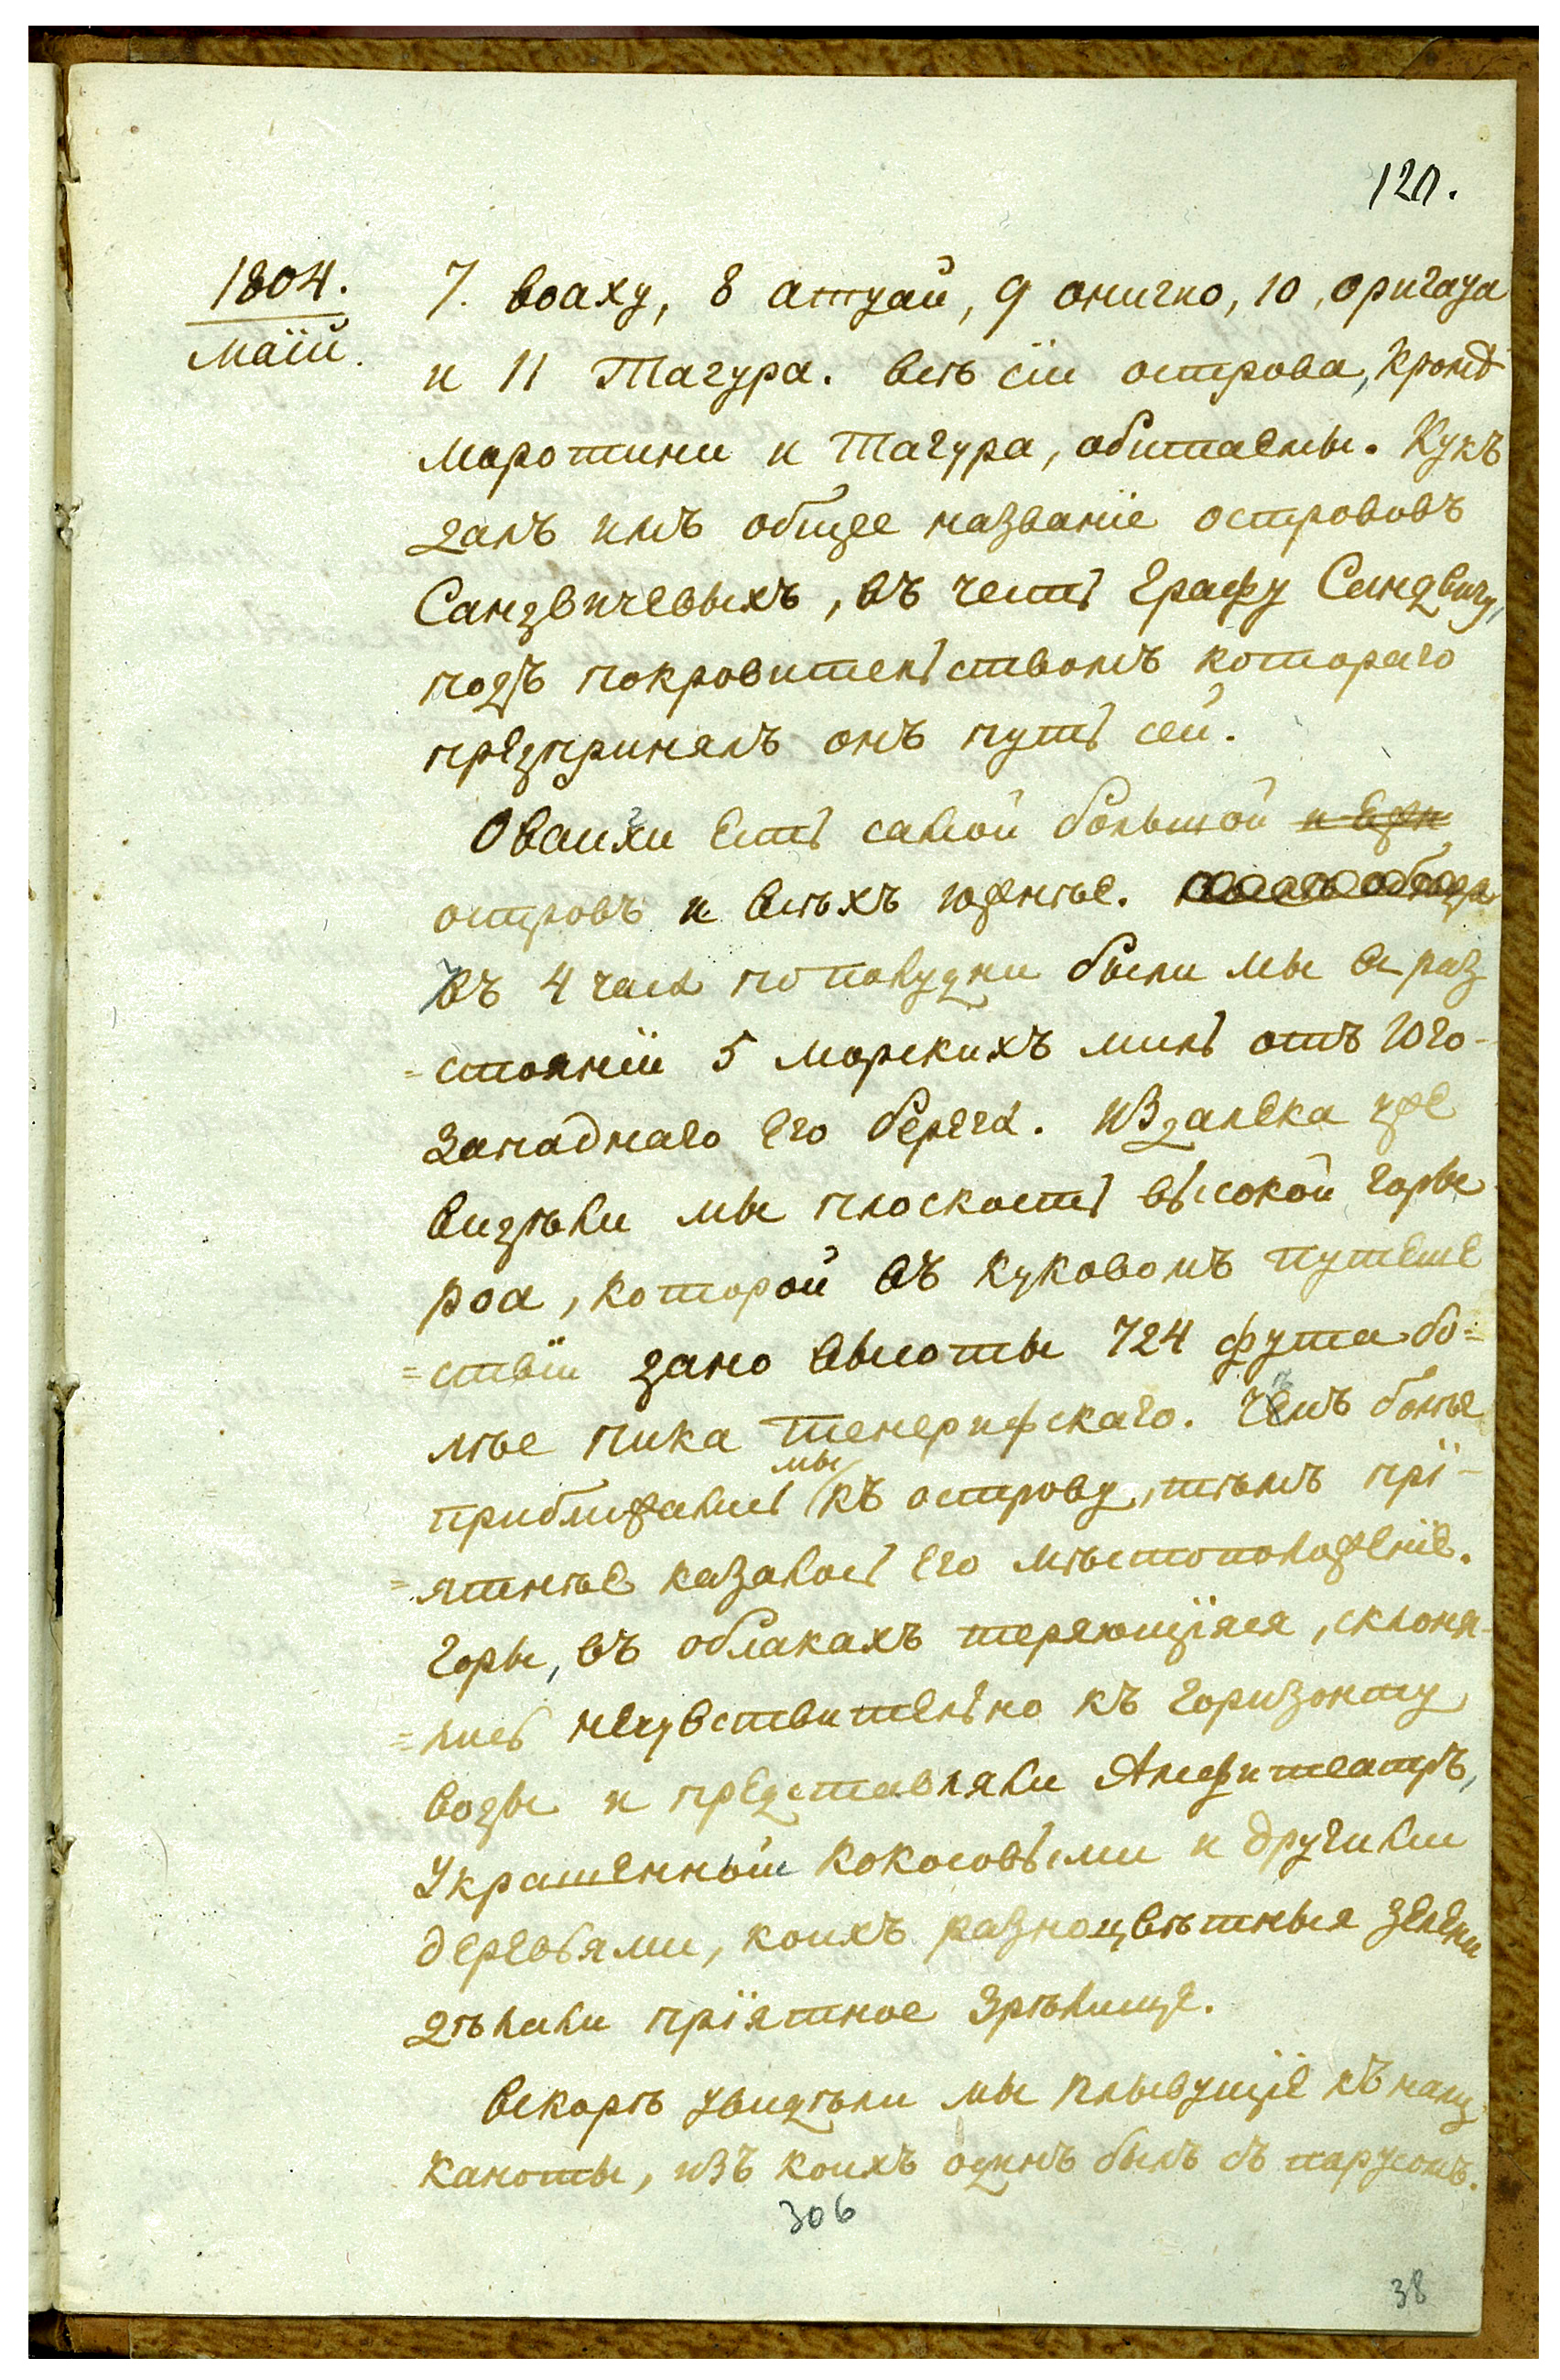 120.
1804.
Маій.
7. воаху, 8 атуай, 9 онигио, 10, оригауа
и 11 Тагура. всѣ сіи острова, кромѣ
моротини и Тагура, обитаемы. Кукъ
далъ имъ общее названіе острововъ
Сандвичевыхъ, въ честь Графу Сандвичу,
подъ покровительствомъ котораго
предпринялъ онъ путь сей.
Оваихи есть самой большой и
островъ и всѣхъ южнѣе.
въ 4 часа по полудни были мы в раз
=стояніи 5 морскихъ миль отъ Юго-
западнаго его берега. Издалека уже
видѣли мы плоскость высокой горы
роа, которой въ Куковомъ путеше
=ствіи дано высоты 724 фута бо=
лѣе пика Тенерифскаго. Чѣмъ болѣе
приближались мы къ острову, тѣмъ прі-
=ятнѣе казалось его мѣстоположеніе.
Горы, въ облакахъ теряющіяся, склоня-
=лись нечувствительно къ горизонту
воды и представляли Амфитеатръ,
Украшенный кокосовыми и другими
деревьями, коихъ разноцвѣтныя зелени
дѣлали пріятное Зрѣлище.
вскорѣ увидѣли мы плывущіе къ намъ
каноты, изъ коихъ одинъ былъ съ парусомъ.
306
38